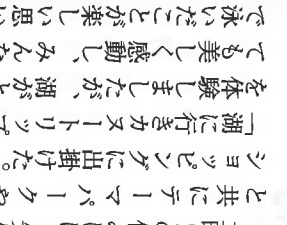 と共にテーマパークや
ショッピングに出掛けた。
「湖に行きカヌートリップ
を体験しましたが、湖がと
ても美しく感動し、みんな
で泳いだことが楽しい思い